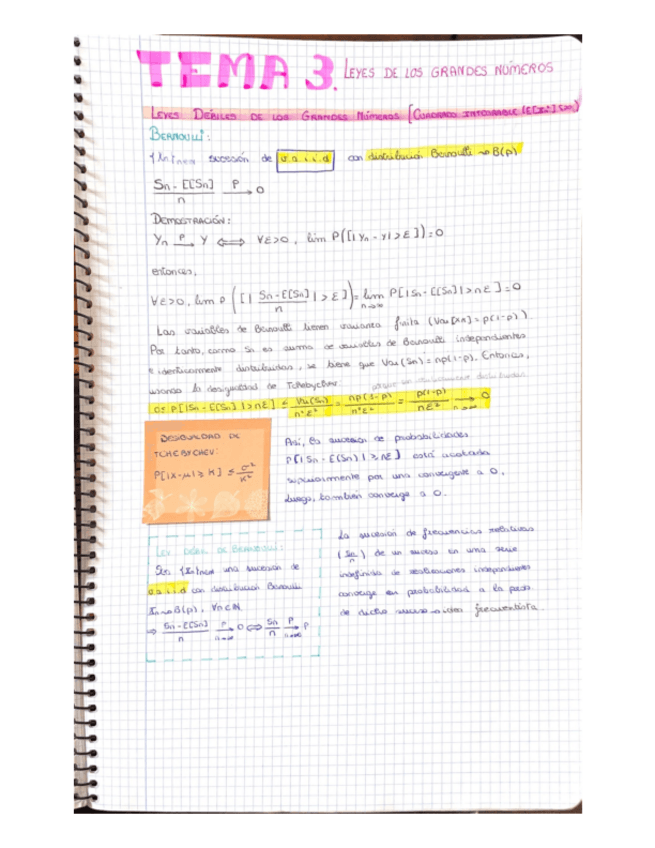 TEMA 3. LEYES DE LOS GRANDES NÚMEROS
LEYES DÉBILES DE LOS GRANDES NÚMEROS [CUADRADO INTEGRABLE
BERNOULLI:
sucesión de v.a.i.i.d con distribución Bernoulli ⇝ B(p)
Sn - E[Sn] / n →P 0
DEMOSTRACIÓN:
Yn →P Y ⟺ ∀ε>0, lim P([|Yn - Y|>ε])=0
entonces,
∀ε>0, lim P([|Sn-E[Sn] / n|>ε])= lim n→∞ P[|Sn-E[Sn]|>nε]=0
Las variables de Bernoulli tienen varianza finita (Var[Xn]=p(1-p)).
Por tanto, como Sn es suma de variables de Bernoulli independientes
e idénticamente distribuidas, se tiene que Var(Sn)=np(1-p). Entonces,
usando la desigualdad de Tchebychev
0≤P[|Sn-E[Sn]|>nε] ≤ Var(Sn)/n²ε² = np(1-p)/n²ε² = p(1-p)/nε² →n→∞ 0
DESIGUALDAD DE
TCHEBYCHEV:
P[|X-μ|≥K] ≤ σ²/K²
Así, la sucesión de probabilidades
P[|Sn-E(Sn)|≥nε] está acotada
superiormente por una convergente a 0,
luego, también converge a 0.
LEY DÉBIL DE BERNOULLI:
Sea una sucesión de
v.a.i.i.d con distribución Bernoulli
Xn⇝B(p), ∀n∈ℕ
⇒ Sn-E[Sn] / n →P n→∞ 0 ⟺ Sn/n →P n→∞ p
La sucesión de frecuencias relativas
(Sn/n) de un suceso en una serie
indefinida de realizaciones independientes
converge en probabilidad a la prob.
de dicho suceso → idea frecuentista